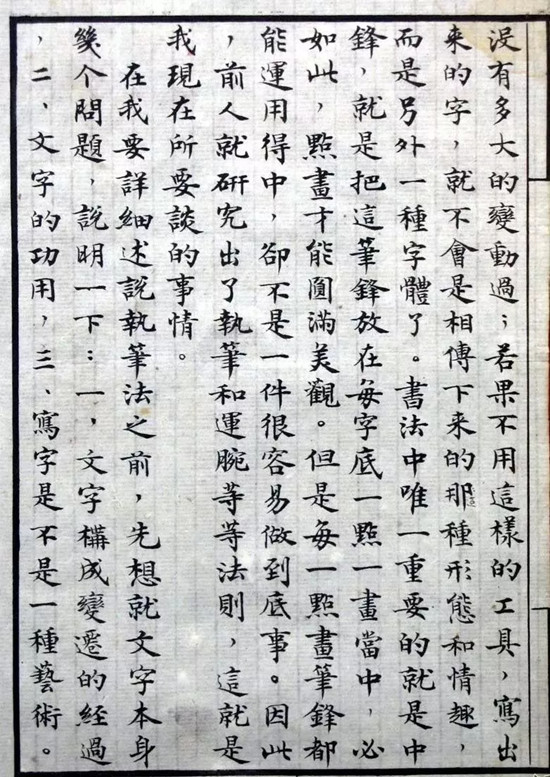 沒有多大的變動過；若果不用這樣的工具，寫出
來的字，就不會是相傳下來的那種形態和情趣，
而是另外一種字體了。書法中唯一重要的就是中
鋒，就是把這筆鋒放在每字底一點一畫當中，必
如此，點畫才能圓滿美觀。但是每一點畫筆鋒都
能運用得中，卻不是一件很容易做到底事。因此
，前人就研究出了執筆和運腕等等法則，這就是
我現在所要談的事情。
在我要詳細述說執筆法之前，先想就文字本身
幾个問題，說明一下：一，文字構成變遷的經過
，二、文字的功用，三、寫字是不是一種藝術。